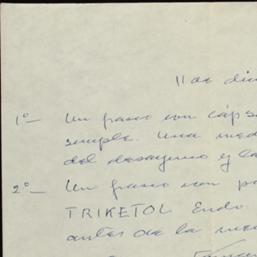 11 de di
1º— Un frasco con cáps
simple. Una med
del desayuno y la
2º— Un frasco con p
TRIKETOL Endo.
antes de la me